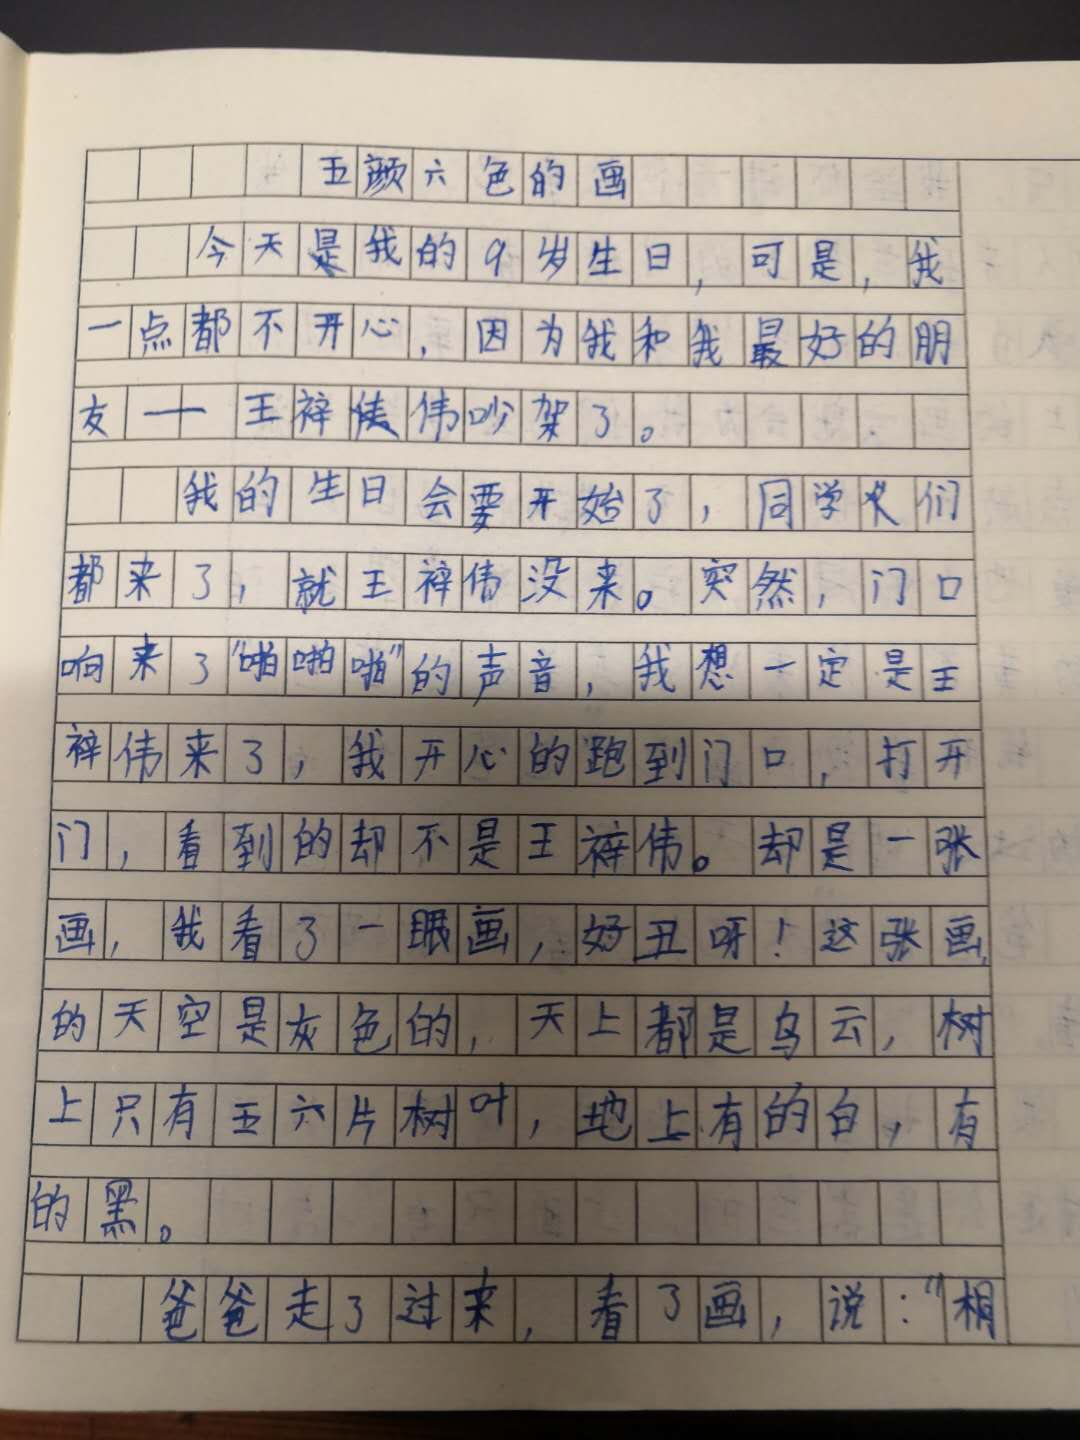 五颜六色的画
今天是我的9岁生日，可是，我
一点都不开心，因为我和我最好的朋
友——王梓伟吵架了。
我的生日会要开始了，同学们
都来了，就王梓伟没来。突然，门口
响来了“啪啪啪”的声音，我想一定是王
梓伟来了，我开心的跑到门口，打开
门，看到的却不是王梓伟。却是一张
画，我看了一眼画，好丑呀！这张画，
的天空是灰色的，天上都是乌云，树
上只有五六片树叶，地上有的白，有
的黑。
爸爸走了过来，看了画，说：“相